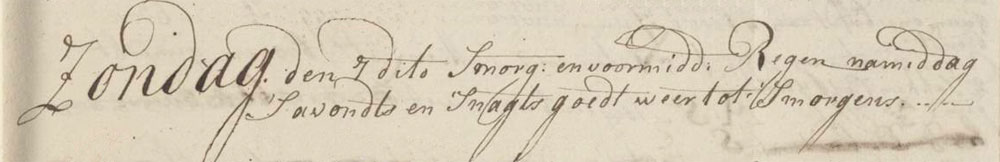 Zondag. den 7 dito Smorg: en voormidd: Regen namiddag
Savondts en Snagts goedt weer tot Smorgens. ....